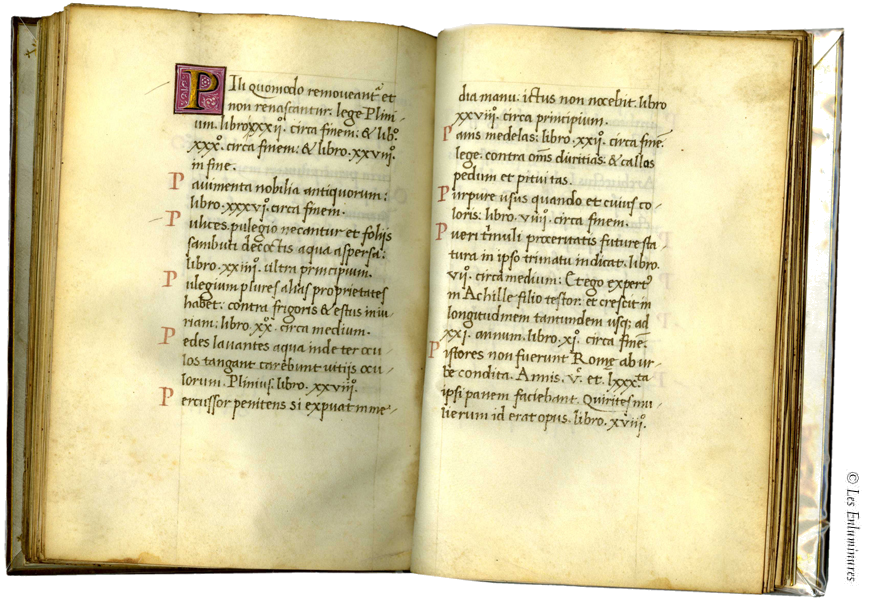 Pili quomodo removeantᷣ et
non renascantur. lege Plini-
um. libro xxxijº. circa finem: & libº.
xxxº. circa finem: & libro. xxviijº.
in fine.
Pavimenta nobilia antiquorum:
libro. xxxvjº. circa finem.
Pulices pulegio necantur et folijs
sambuci decoctis aqua aspersa:
libro. xxiiijº. ultra principium.
Pulegium plures alias proprietates
habet: contra frigoris & estus iniu-
riam: libro. xxº. circa medium.
Pedes lavantes aqua inde ter ocu-
los tangant carebunt vitijs ocu-
lorum. Plinius. libro. xxviijº.
Percussor penitens si expuat in me-
dia manu: ictus non nocebit. libro
xxviijº. circa principium.
Panis medelas: libro. xxijº. circa finē.
lege. contra oms duritias. & callos
pedum et pituitas.
Purpure usus quando et cuius co-
loris: libro. viiijº. circa finem.
Pueri trimuli proceritatis future sta
tura in ipso trimatu indicat. libro.
vijº. circa medium: Et ego expertᵘ
in Achille filio testor. et crescit in
longitudinem tantundem usqȝ ad
xxi. annum. libro. xjº. circa finē.
Pistores non fuerunt Romę ab ur-
be condita. Annis. vº. et. lxxxᵗᵃ
ipsi panem faciebant. Quirites mu-
lierum id erat opus. libro. xviijº.
© Les Enluminures